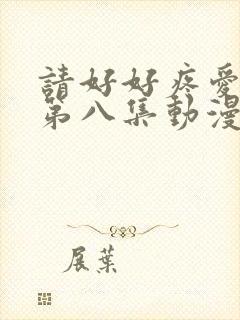 請好好疼愛
第八集動漫
展葉